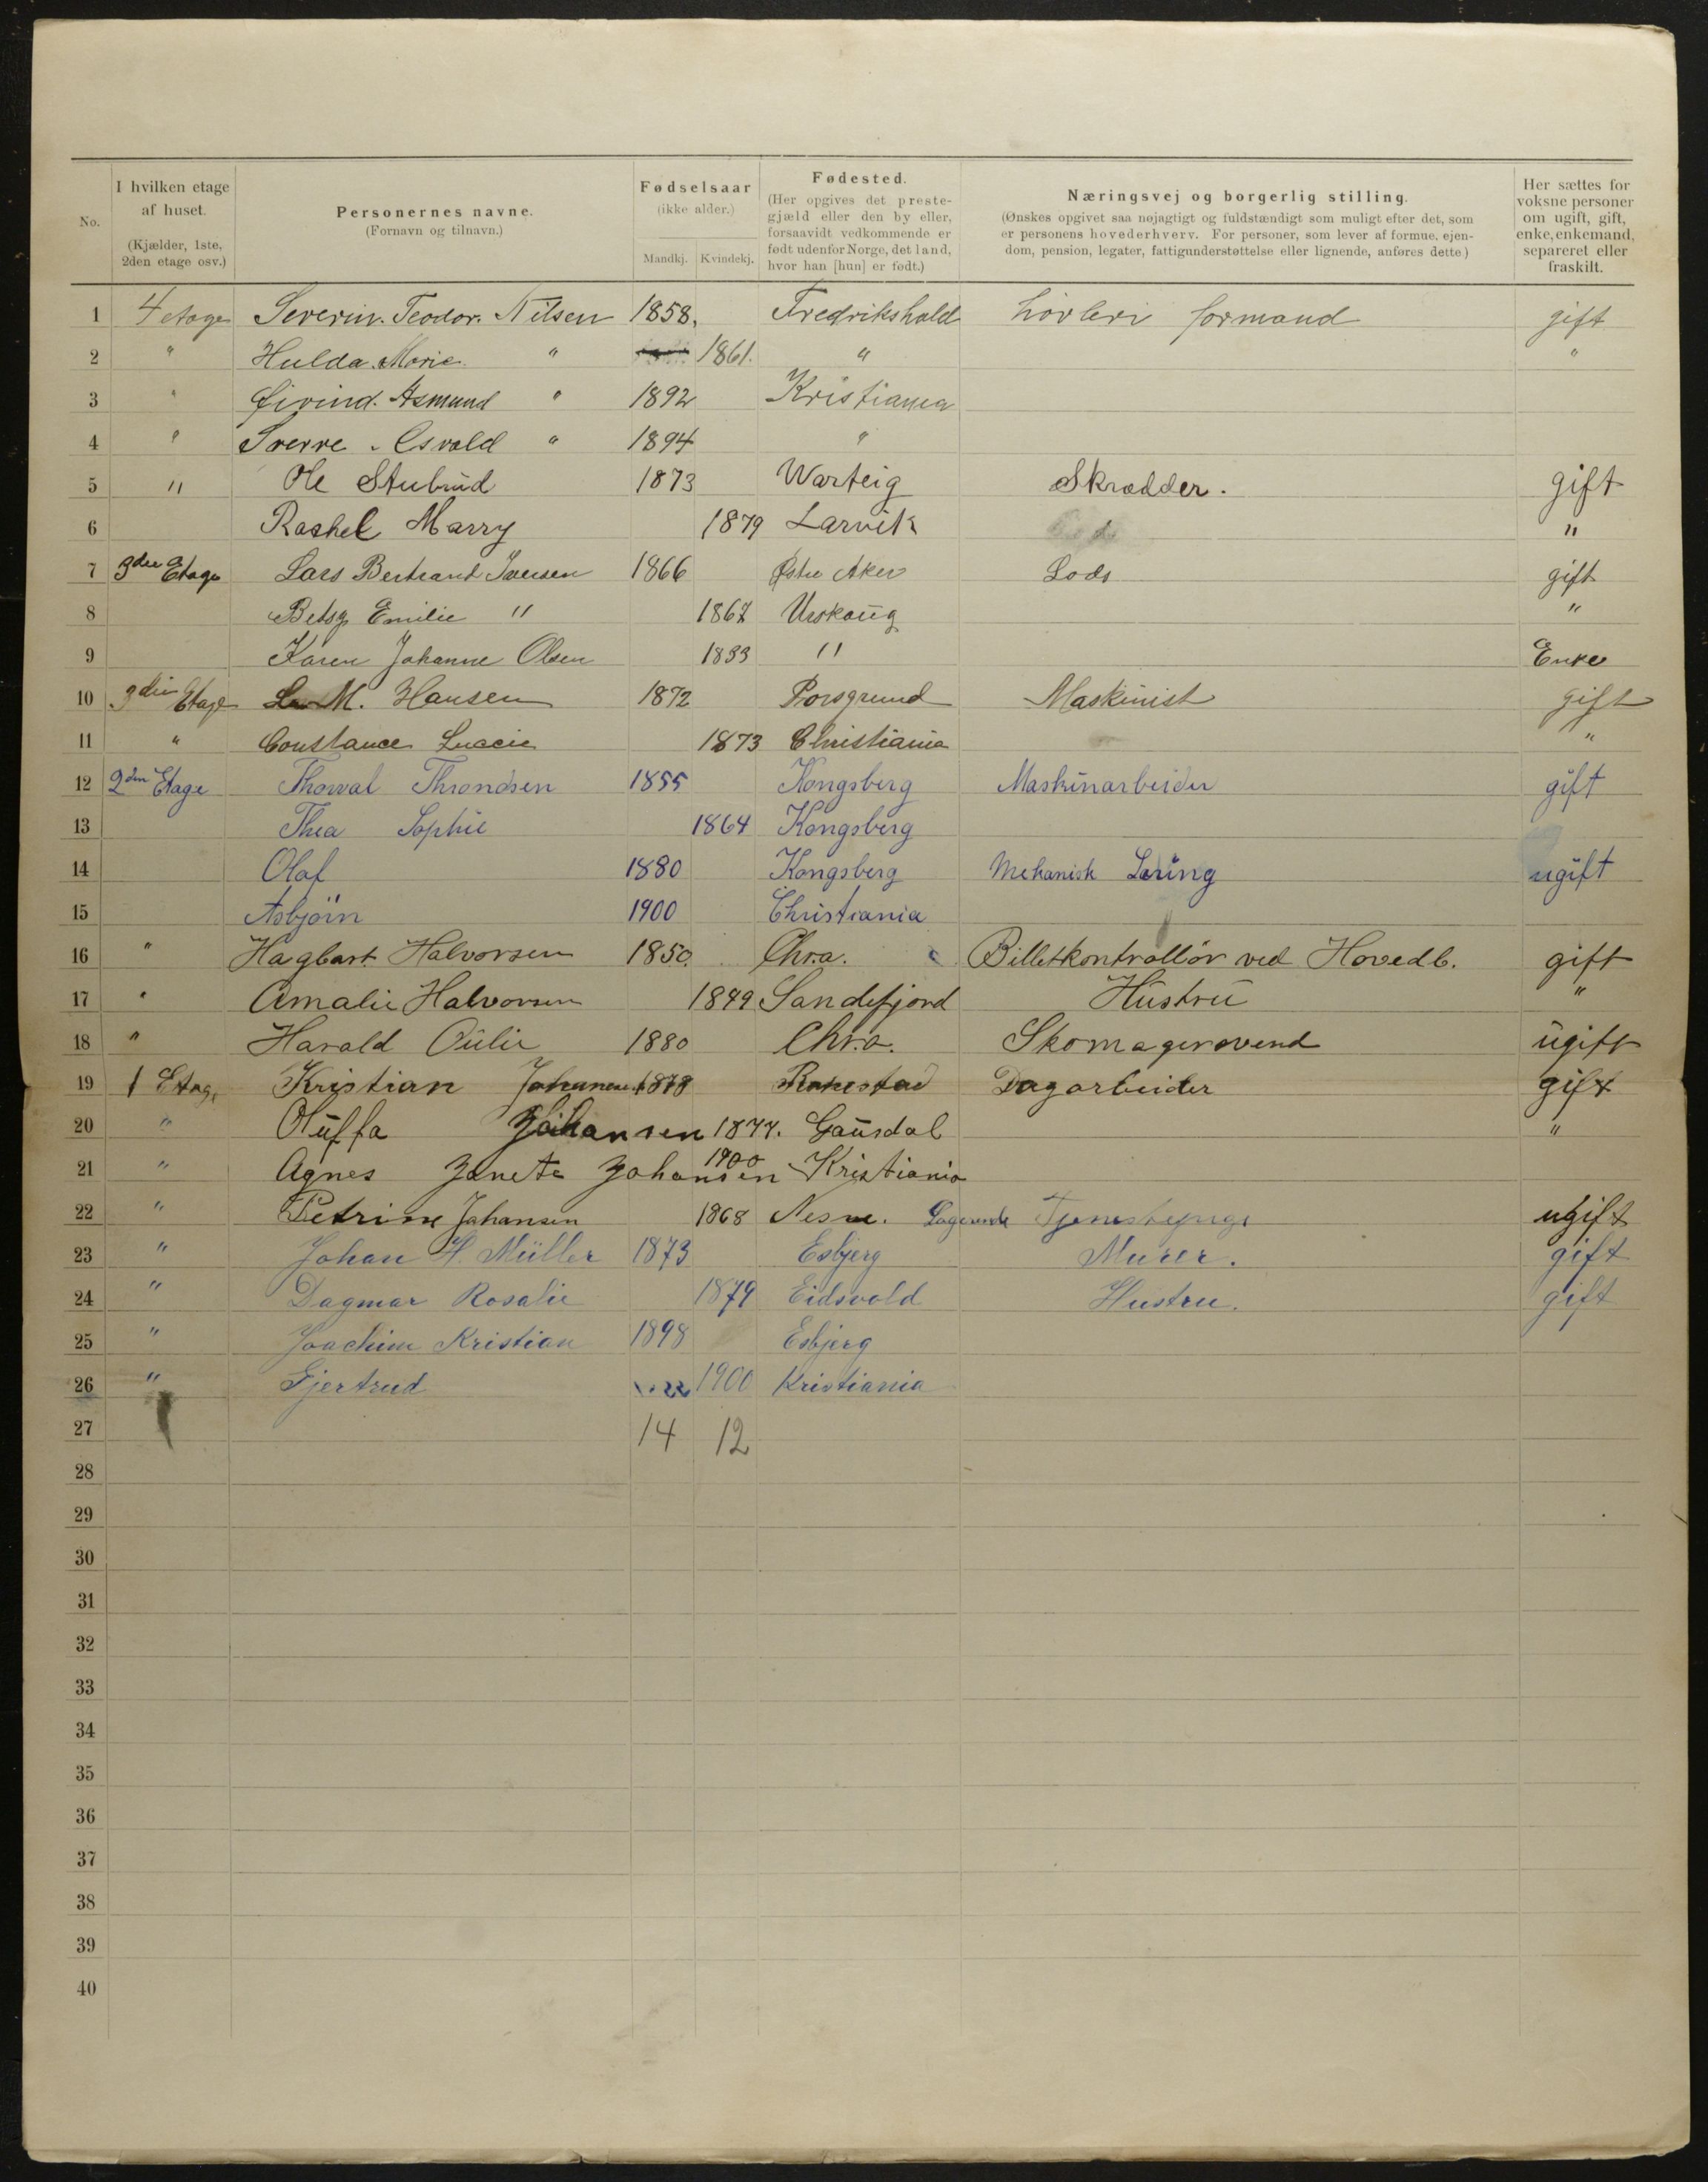 No.
I hvilken etage af huset.
(Kjælder, 1ste, 2den etage osv.)
Personernes navne.
(Fornavn og tilnavn.)
Fødselsaar
(ikke alder.)
Mandkj. Kvindekj.
Fødested.
(Her opgives det preste-
gjæld eller den by eller,
forsaavidt vedkommende er
født udenfor Norge, det land,
hvor han [hun] er født.)
Næringsvej og borgerlig stilling.
(Ønskes opgivet saa nøjagtigt og fuldstændigt som muligt efter det, som
er personens hovederhverv. For personer, som lever af formue, ejen-
dom, pension, legater, fattigunderstøttelse eller lignende, anføres dette)
Her sættes for
voksne personer
om ugift, gift,
enke, enkemand,
separeret eller
fraskilt.
1 4 etage Severin. Teodor. Nilsen 1858. Fredrikshald høvleri formand gift
2 " Hulda. Marie. " 1861. " "
3 " Øivind. Asmund " 1892 Kristiania
4 " Sverre. Osvald " 1894 "
5 " Ole Stubrud 1873 Warteig Skrædder. gift
6 Rachel Marry 1879 Larvik "
7 3die Etage Lars Bertrand Iversen 1866 Østre Aker Lods gift
8 Betsy Emilie " 1867 Urskoug "
9 Karen Johanne Olsen 1833 " Enke
10 3die Etage M. Hansen 1872 Porsgrund Maskinist gift
11 " Constance Luccie 1873 Christiania "
12 2den Etage Thorval Throndsen 1855 Kongsberg Maskinarbeider gift
13 Thea Sophie 1864 Kongsberg
14 Olaf 1880 Kongsberg Mekanisk Læring ugift
15 Asbjørn 1900 Christiania
16 " Hagbart Halvorsen 1850. Chr.a. Billetkontrollør ved Hovedb. gift
17 " Amalie Halvorsen 1849 Sandefjord Hustru "
18 " Harald Oulie 1880 Chr.a. Skomagersvend ugift
19 1 Etag. Kristian Johansen 1878 Dagarbeider gift
20 " Oluffa Johansen 1877. Gausdal "
21 " Agnes Janete Johansen 1900 Kristiania
22 " Petrine Johansen 1868 Nesne. Logerende ugift
23 " Johan H. Müller 1873 Esbjerg Murer. gift
24 " Dagmar Rosalie 1879 Eidsvold Hustru. gift
25 " Joachim Kristian 1898 Esbjerg
26 " Gjertrud 1900 Kristiania
27 14 12
28
29
30
31
32
33
34
35
36
37
38
39
40